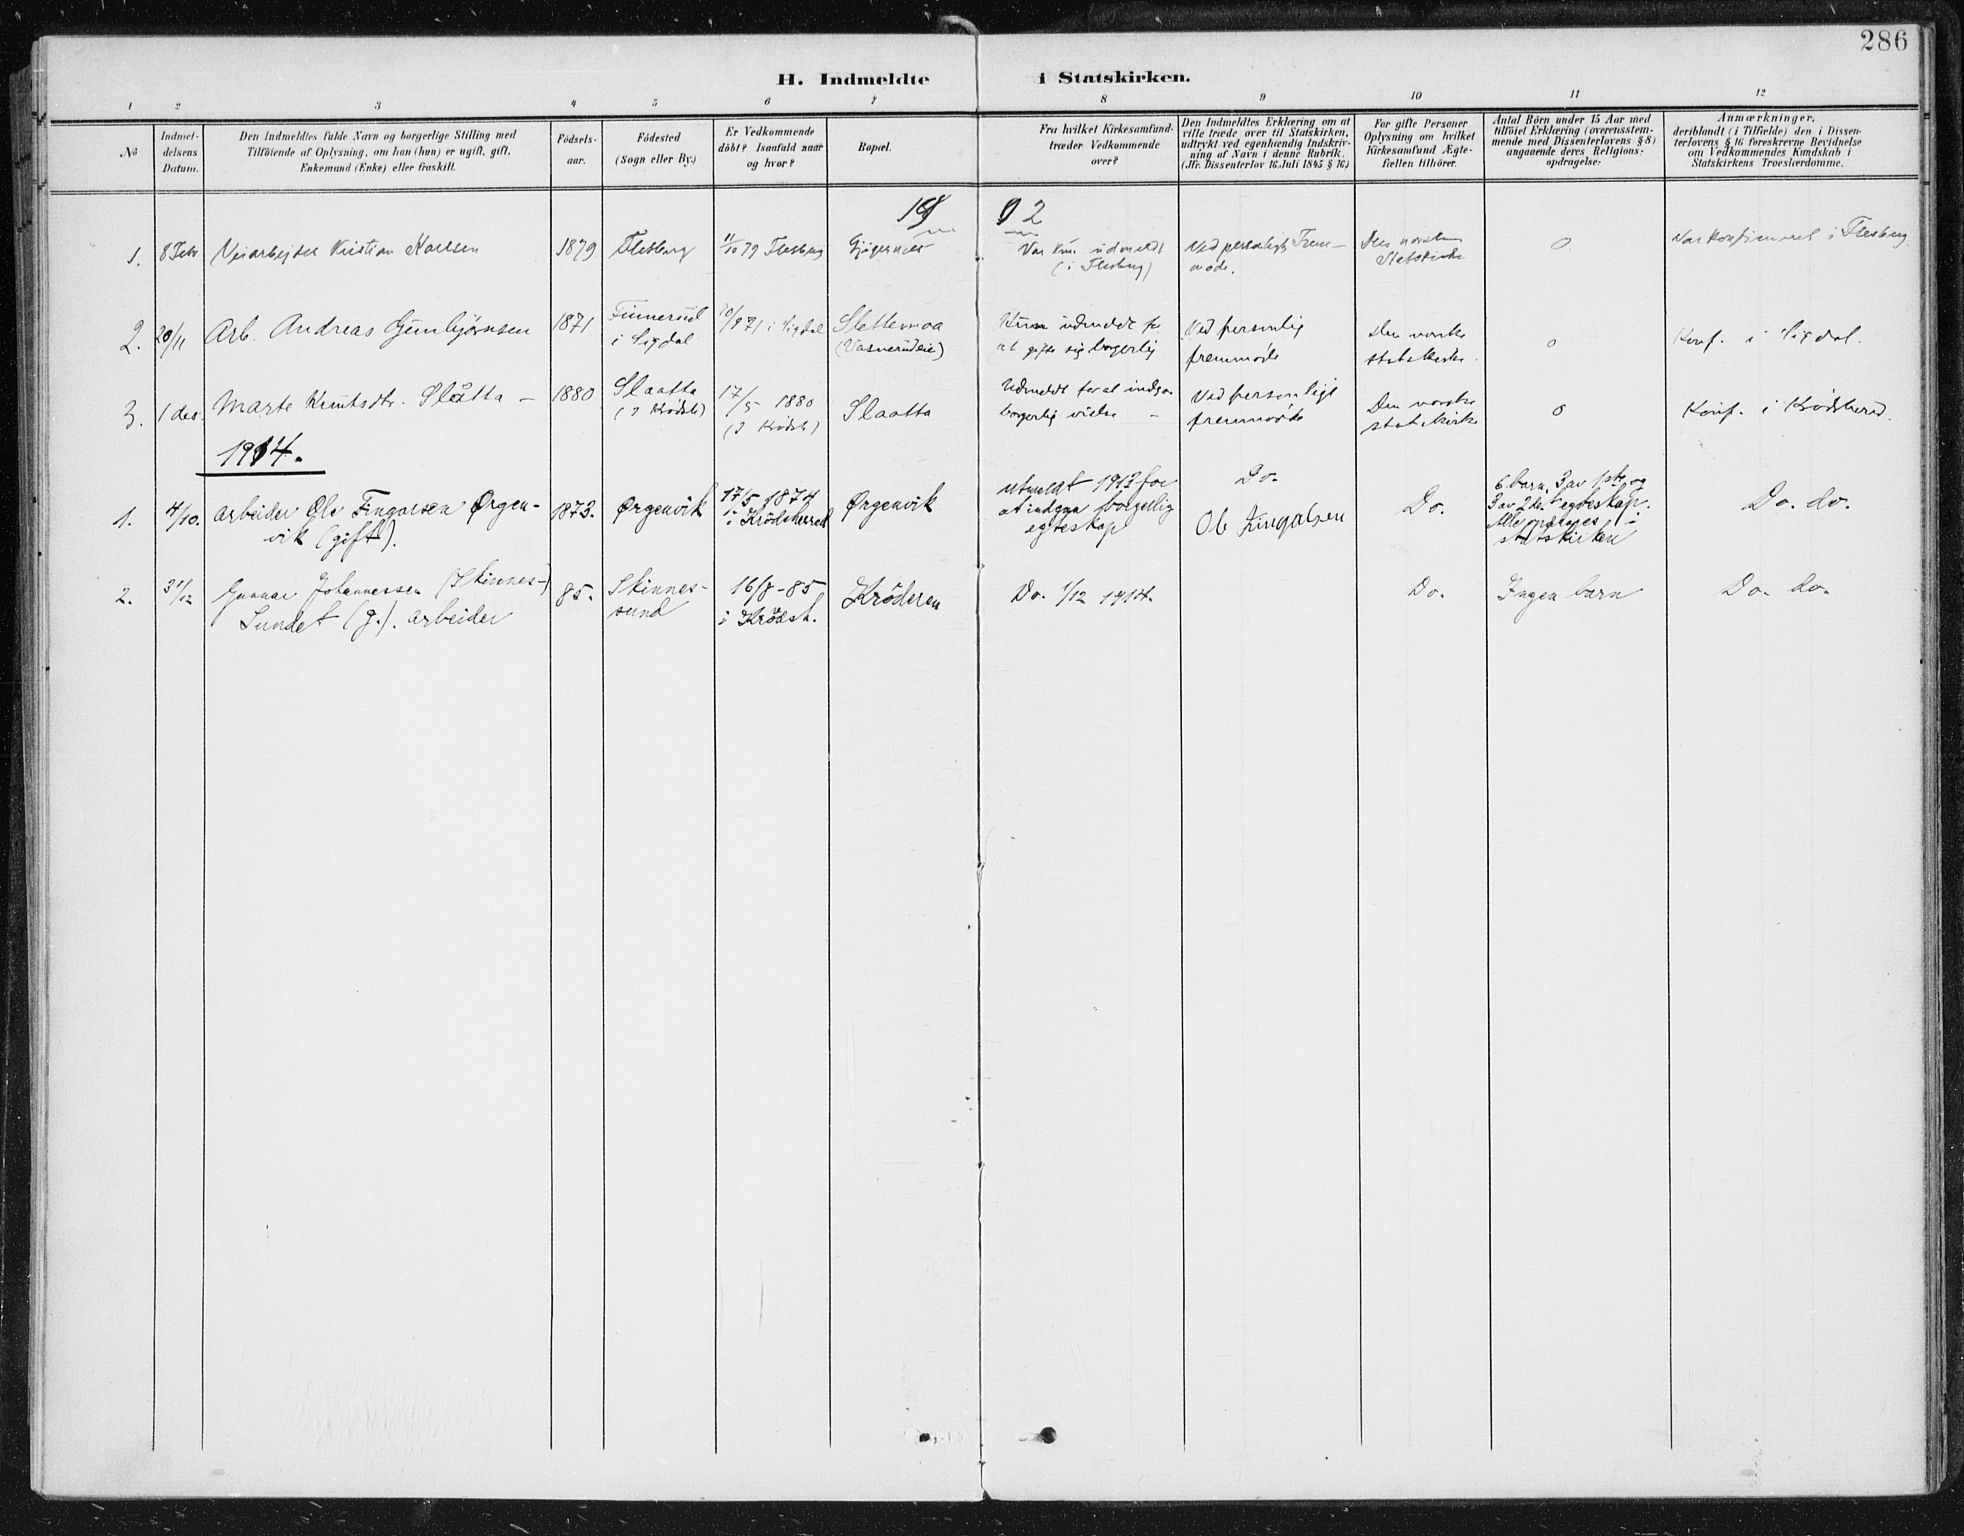 286
H. Indmeldte i Statskirken.
1 2 3 4 5 6 7 8 9 10 11 12
No
Indmel-
delsens
Datum.
Den Indmeldtes fulde Navn og borgerlige Stilling med
Tilföiende af Oplysning, om han (hun) er ugift, gift,
Enkemand (Enke) eller fraskilt.
Födsels-
aar.
Födested
(Sogn eller By.)
Er Vedkommende
döbt? Isaafald naar
og hvor?
Bopæl.
Fra hvilket Kirkesamfund
træder Vedkommende
over?
Den Indmeldtes Erklæring om at
ville træde over til Statskirken,
udtrykt ved egenhændig Indskriv-
ning af Navn i denne Rubrik.
(Jfr. Dissenterlov 16. Juli 1845 § 16.)
For gifte Personer
Oplysning om hvilket
Kirkesamfund Ægte-
fællen tilhörer.
Antal Börn under 15 Aar med
tilföiet Erklæring (overensstem-
mende med Dissenterlovens § 8)
angaaende deres Religions-
opdragelse:
Anmærkninger,
deriblandt (i Tilfælde) den i Dissen-
terlovens § 16 foreskrevne Bevidnelse
om Vedkommendes Kundskab i
Statskirkens Troeslærdomme.
19 02
1. 8 Febr Veiarbejder Kristian Karlsen 1879 Flesberg 11/10 79 Flesberg
Var kun udmeldt
(i Flesberg)
Ved personligt Frem-
møde.
Den norske
Statskirke
0
Var konfirmeret i Flesberg
2. 20/11 Arb. Andreas Gunbjørnsen 1871
Finnerud
i Sigdal
10/9 71 i Sigdal
Slettemoa
(Vasnerudeie)
Kun udmeldt for
at gifte sig borgerlig
Ved personlig
fremmøde
Den norske
statskirke.
0
Konf. i Sigdal.
3. 1 des. Marte Knutsdtr. Slåtta - 1880
Slaatta
(I Krødsh)
17/5 1880
(I Krødsh)
Slaatta
Udmeldt for at indgaa
borgerlig vielse -
Ved personligt
fremmøde
Den norske
statskirke
0
Konf. i Krødsherad
1914.
1. 4/10. arbeider Ole Fingarsen Ørgen-
vik (gift).
1873. Ørgenvik
17/5 1874
i Krødsherred
Ørgenvik
utmeldt 1913 for
at indgaa borgerlig
egteskap
Do.
Ole Fingalsen
Do.
6 barn, 3 av 1ste og
3 av 2det egteskap.
Alle opdrages i
statskirken
Do. do.
2. 31/12 Gunnar Johannessen (Skinnes-)
Sundet (g.). arbeider
85.
Skinnes-
sund
16/8-85
i Krødsh.
Kröderen
Do. 1/12 1914.
Do.
Ingen barn
Do. do.